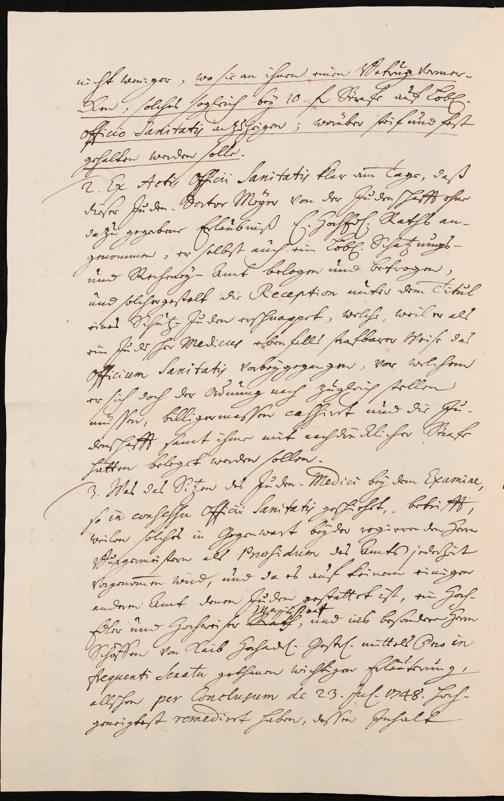 nicht weniger, wo sie an ihnen einen Betrug vermer-
cken, solches sogleich bey 10. f. Strafe auf Löbl.
Officio Sanitatis anzuzeigen; worüber steif und fest
gehalten werden solle.
2. Ex Actis Officii Sanitatis klar am Tage, daß
dieser Juden-Doctor Meyer von der Judenschafft ohne
dazu gegebene Erlaubniß E. Hochedl. Raths an-
genommen, er selbst auch ein Löbl. Schatzungs-
und Rechney-Amt belogen und betrogen,
und solchergestalt die Reception unter dem Titul
eines Schutz-Juden erschnappet, welche, weil er als
ein Jüdischer Medicus ebenfalls strafbarer Weise das
Officium Sanitatis vorbeygegangen, vor welchem
er sich doch der Ordnung nach zugleich stellen
müssen, billigermassen cassiret und die Ju-
denschafft samt ihme mit nachdrücklicher Strafe
hätten beleget werden sollen.
3. Was das Sitzen des Juden-Medici bey dem Examine,
so in consessu Officii Sanitatis geschiehet, betrifft,
weilen solches in Gegenwart beyder regierenden Herrn
Burgermeistern als Praesidum des Amts jederzeit
vorgenommen wird, und da es auf keinem einigen
andern Amt denen Juden gestattet ist, ein Hoch-
Edler und Hochweiser Magistrat, und ins besondere Herrn
Schöffen von Laib Hochadel. Gestr. mittels Pro in
frequenti Senatu gethanen wichtigen Erläuterung,
allschon per Conclusum de 23. Jul. 1748. Hoch-
geneigtest remedirt haben, dessen Inhalt